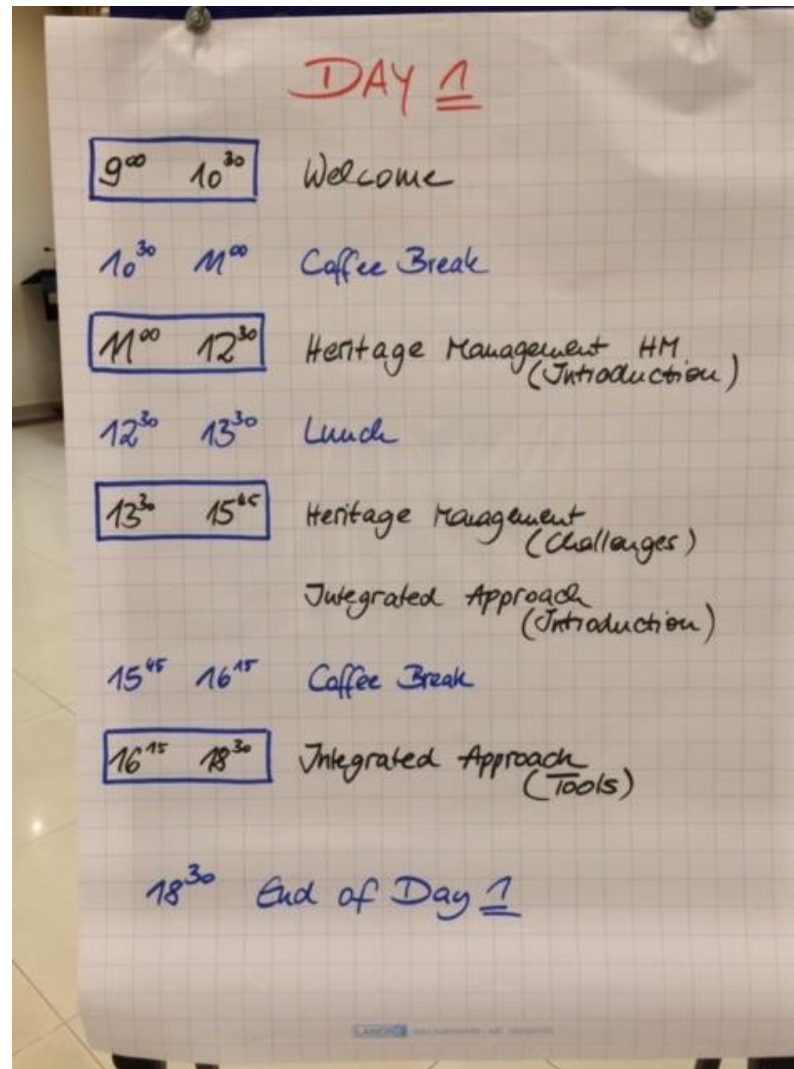 DAY 1
9⁰⁰ 10³⁰ Welcome
10³⁰ 11⁰⁰ Coffee Break
11⁰⁰ 12³⁰ Heritage Management HM
(Introduction)
12³⁰ 13³⁰ Lunch
13³⁰ 15⁴⁵ Heritage Management
(Challenges)
Integrated Approach
(Introduction)
15⁴⁵ 16¹⁵ Coffee Break
16¹⁵ 18³⁰ Integrated Approach
(Tools)
18³⁰ End of Day 1